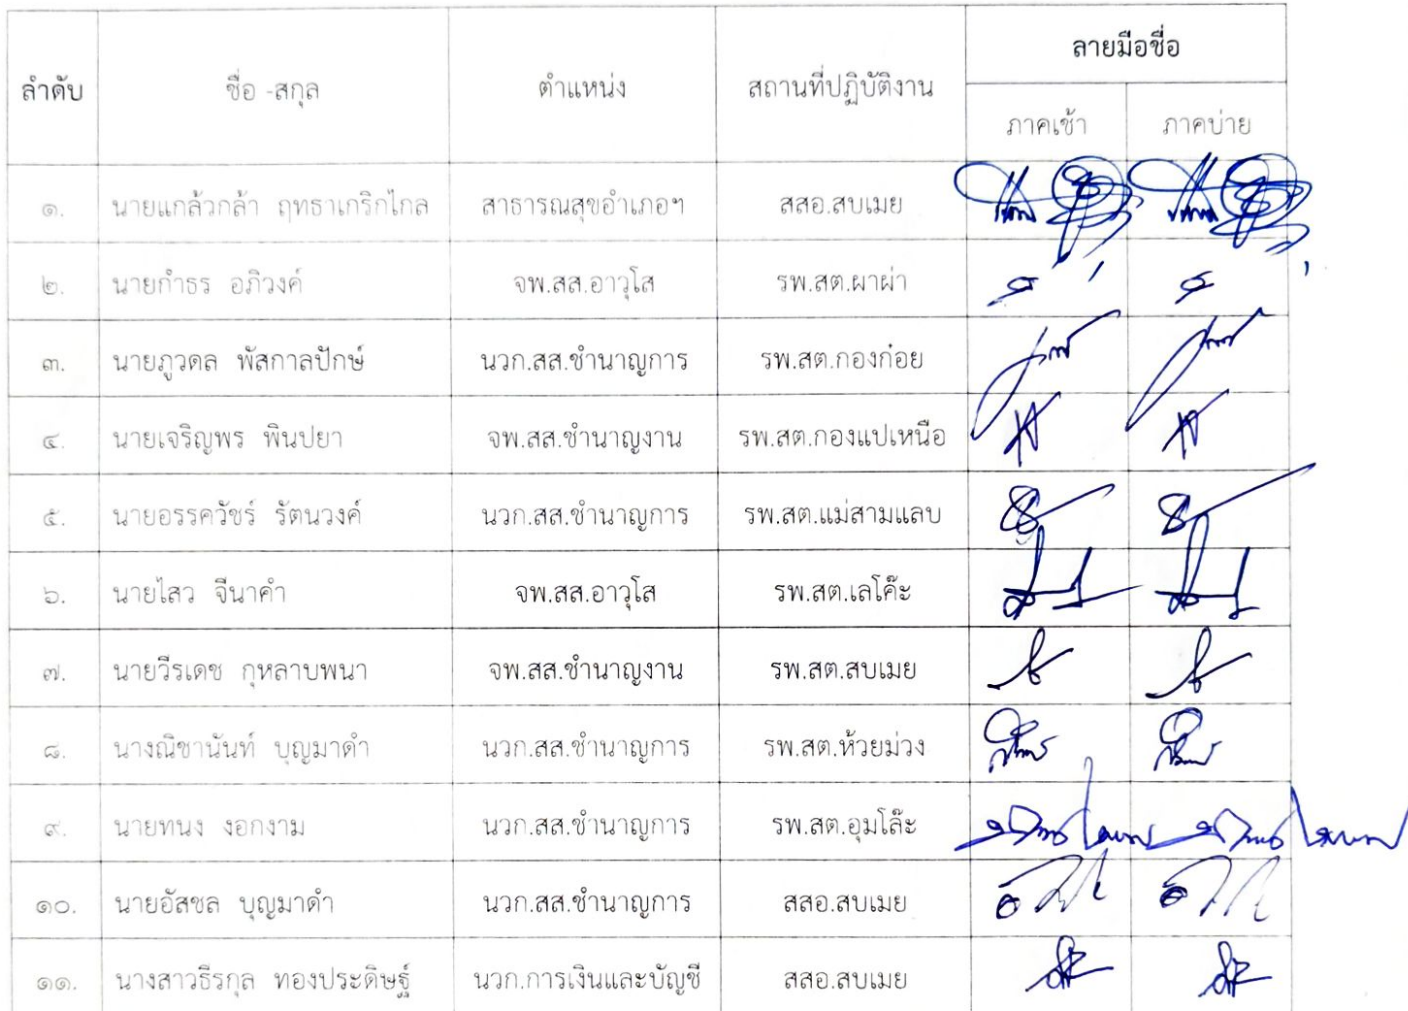 ลำดับ ชื่อ -สกุล ตำแหน่ง สถานที่ปฏิบัติงาน ลายมือชื่อ
ภาคเช้า ภาคบ่าย
๑. นายแกล้วกล้า ฤทธาเกริกไกล สาธารณสุขอำเภอฯ สสอ.สบเมย
๒. นายกำธร อภิวงค์ จพ.สส.อาวุโส รพ.สต.ผาผ่า
๓. นายภูวดล พัสกาลปักษ์ นวก.สส.ชำนาญการ รพ.สต.กองก๋อย
๔. นายเจริญพร พินปยา จพ.สส.ชำนาญงาน รพ.สต.กองแปเหนือ
๕. นายอรรควัชร์ รัตนวงค์ นวก.สส.ชำนาญการ รพ.สต.แม่สามแลบ
๖. นายไสว จีนาคำ จพ.สส.อาวุโส รพ.สต.เลโค๊ะ
๗. นายวีรเดช กุหลาบพนา จพ.สส.ชำนาญงาน รพ.สต.สบเมย
๘. นางณิชานันท์ บุญมาดำ นวก.สส.ชำนาญการ รพ.สต.ห้วยม่วง
๙. นายทนง งอกงาม นวก.สส.ชำนาญการ รพ.สต.อุมโล๊ะ
๑๐. นายอัสชล บุญมาดำ นวก.สส.ชำนาญการ สสอ.สบเมย
๑๑. นางสาวธิรกุล ทองประดิษฐ์ นวก.การเงินและบัญชี สสอ.สบเมย